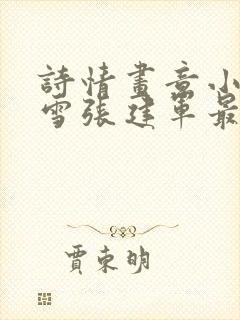 詩情畫意小
雪張建軍最
賈東明